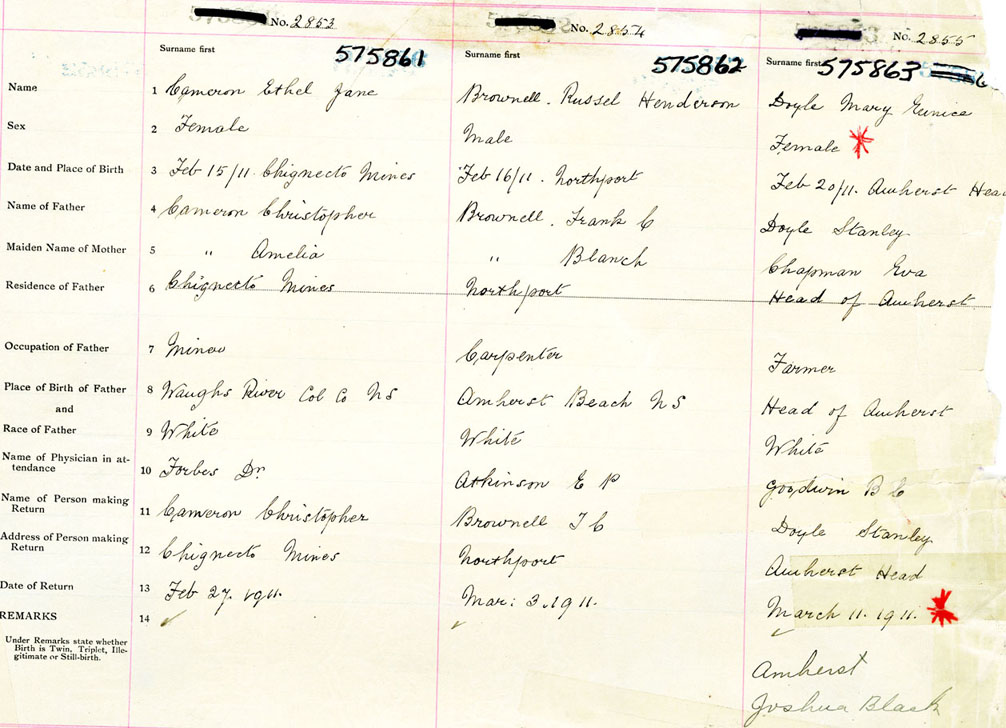 No. 2853 No. 2854 No. 2855
Surname first 575861 Surname first 575862 Surname first 575863
Name 1 Cameron Ethel Jane Brownell. Russel Henderson Doyle Mary Eunice
Sex 2 Female Male Female
Date and Place of Birth 3 Feb 15/11. Chignecto Mines Feb 16/11. Northport Feb 20/11. Amherst Head
Name of Father 4 Cameron Christopher Brownell. Frank C Doyle Stanley
Maiden Name of Mother 5 " Amelia " Blanch Chapman Eva
Residence of Father 6 Chignecto Mines Northport Head of Amherst
Occupation of Father 7 Miner Carpenter Farmer
Place of Birth of Father 8 Waughs River Col Co NS Amherst Beach NS Head of Amherst
and
Race of Father 9 White White White
Name of Physician in at-
tendance 10 Forbes Dr. Atkinson E P Goodwin B C
Name of Person making
Return 11 Cameron Christopher Brownell F C Doyle Stanley
Address of Person making
Return 12 Chignecto Mines Northport Amherst Head
Date of Return 13 Feb 27. 1911. Mar: 3. 1911. March 11. 1911.
REMARKS 14
Under Remarks state whether
Birth is Twin, Triplet, Ille-
gitimate or Still-birth.
Amherst
Joshua Black